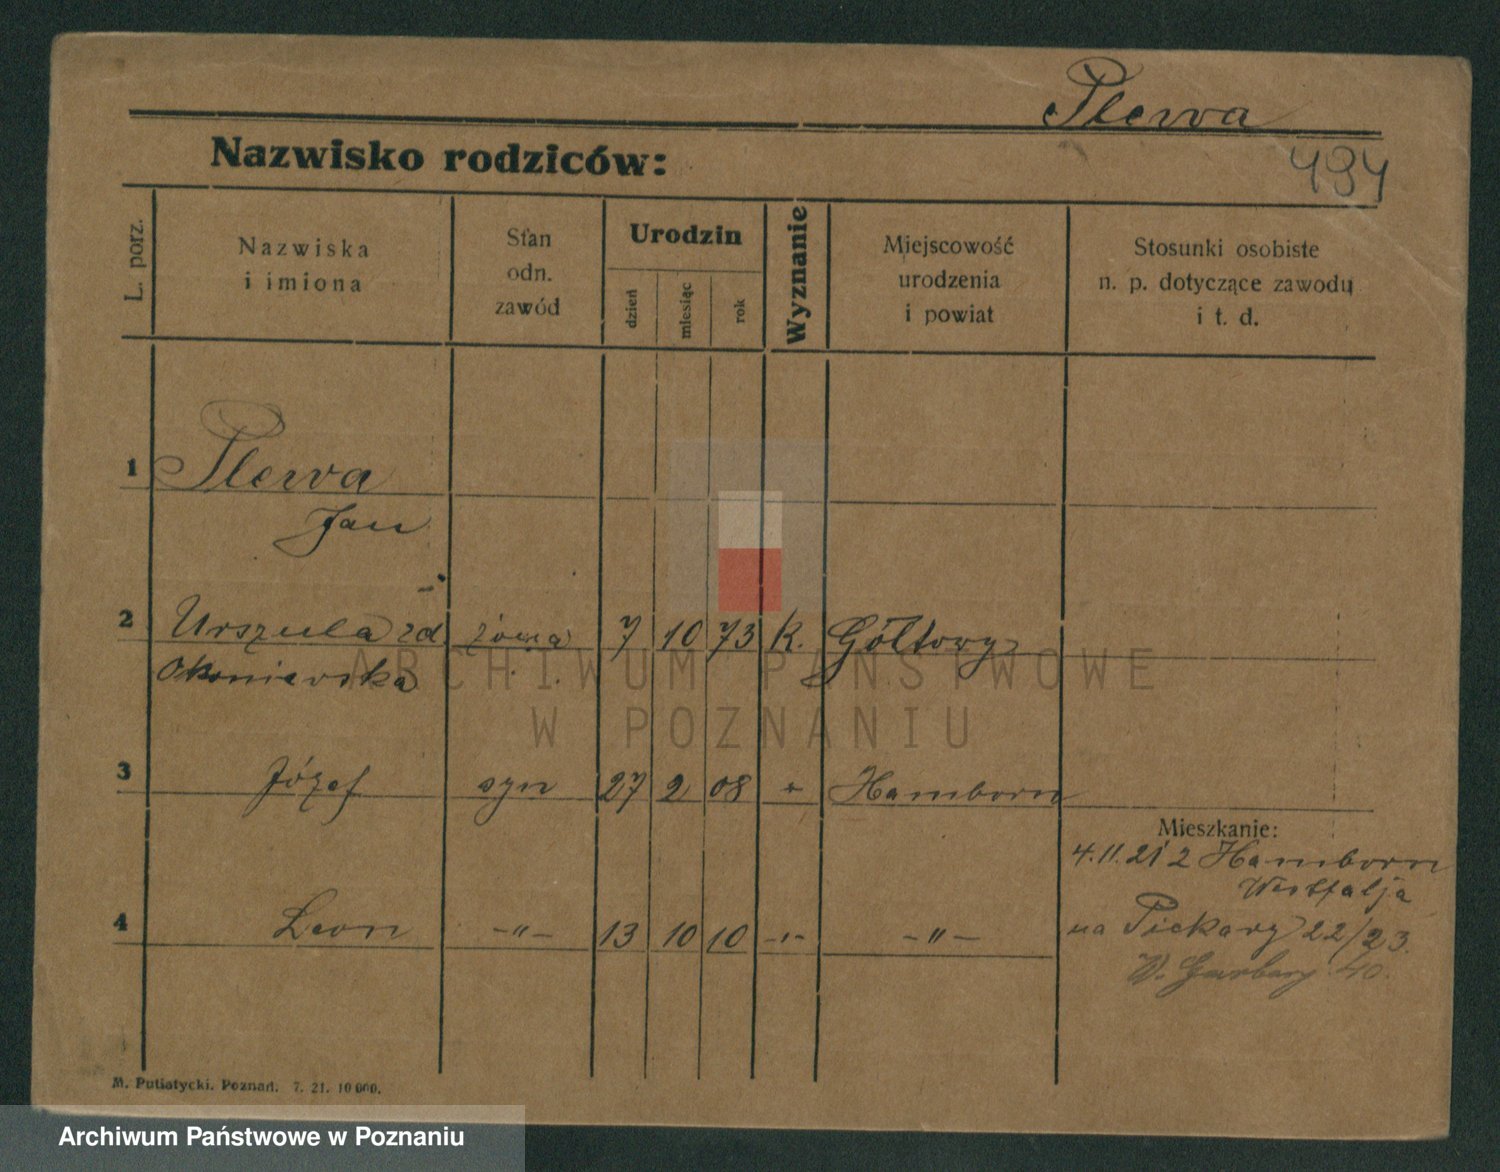 Plewa
Nazwisko rodziców:
494
L. porz.
Nazwiska
i imiona
Stan
odn.
zawód
Urodzin
dzień
miesiąc
rok
Wyznanie
Miejscowość
urodzenia
i powiat
Stosunki osobiste
n. p. dotyczące zawodu
i t. d.
1 Plewa
Jan
2 Urszula zd żona 7 10 73 K. Góltowy
Okoniewska
3 Józef syn 27 2 08 Hamborn
Mieszkanie:
4.11.21 z Hamborn
Westfalja
4 Leon -"- 13 10 10 -"- -"-
na Piekary 22/23.
W. Garbary 40.
M. Putiatycki. Poznań. 7. 21. 10 000.
ARCHIWUM PAŃSTWOWE
W POZNANIU
Archiwum Państwowe w Poznaniu